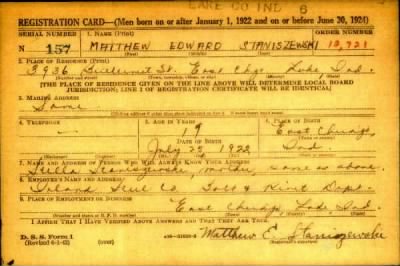 LAKE CO IND 6
REGISTRATION CARD—(Men born on or after January 1, 1922 and on or before June 30, 1924)
SERIAL NUMBER 1. NAME (Print) ORDER NUMBER
N 157 MATTHEW EDWARD STANISZEWSKI 12,721
2. PLACE OF RESIDENCE (Print)
3936 St. East Chgo Lake Ind.
(Number and street) (Town, township, village, or city) (County) (State)
[THE PLACE OF RESIDENCE GIVEN ON THE LINE ABOVE WILL DETERMINE LOCAL BOARD
JURISDICTION; LINE 2 OF REGISTRATION CERTIFICATE WILL BE IDENTICAL]
3. MAILING ADDRESS
Same
4. TELEPHONE 5. AGE IN YEARS 6. PLACE OF BIRTH
— 19 East Chicago
DATE OF BIRTH
July 25 1922 Ind.
7. NAME AND ADDRESS OF PERSON WHO WILL ALWAYS KNOW YOUR ADDRESS
Stella Staniszewski, mother, same as above
8. EMPLOYER'S NAME AND ADDRESS
Inland Steel Co. Dept.
9. PLACE OF EMPLOYMENT OR BUSINESS
East Chicago Lake Ind.
I AFFIRM THAT I HAVE VERIFIED ABOVE ANSWERS AND THAT THEY ARE TRUE.
D. S. S. Form 1
(Revised 6-1-42) (over)
Matthew E. Staniszewski
(Registrant's signature)